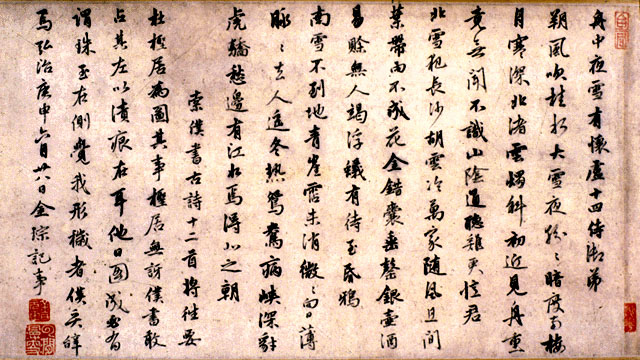 舟中夜雪有懷盧十四侍御弟
朔風吹桂水大雪夜紛〻暗度南樓
月寒深北渚雲燭斜初近見舟重
竟無聞不識山陰道聽雞更憶君
北雪犯長沙胡雲冷萬家隨風且間
葉帶雨不成花金錯囊垂罄銀壺酒
易賒無人竭浮蟻有待至昏鴉
南雪不到地青崖霑未消微〻向日薄
脉〻去人遙冬熱鴛鴦病峽深豺
虎驕愁邊有江水焉得北之朝
索僕書古詩十二首將往要
杜檉居為圖其事檉居無訝僕書敢
占其左以漬痕在耳他日圖成必有
謂珠玉右側覺我形穢者僕奚辭
焉弘治庚申六月廿日金琮記事